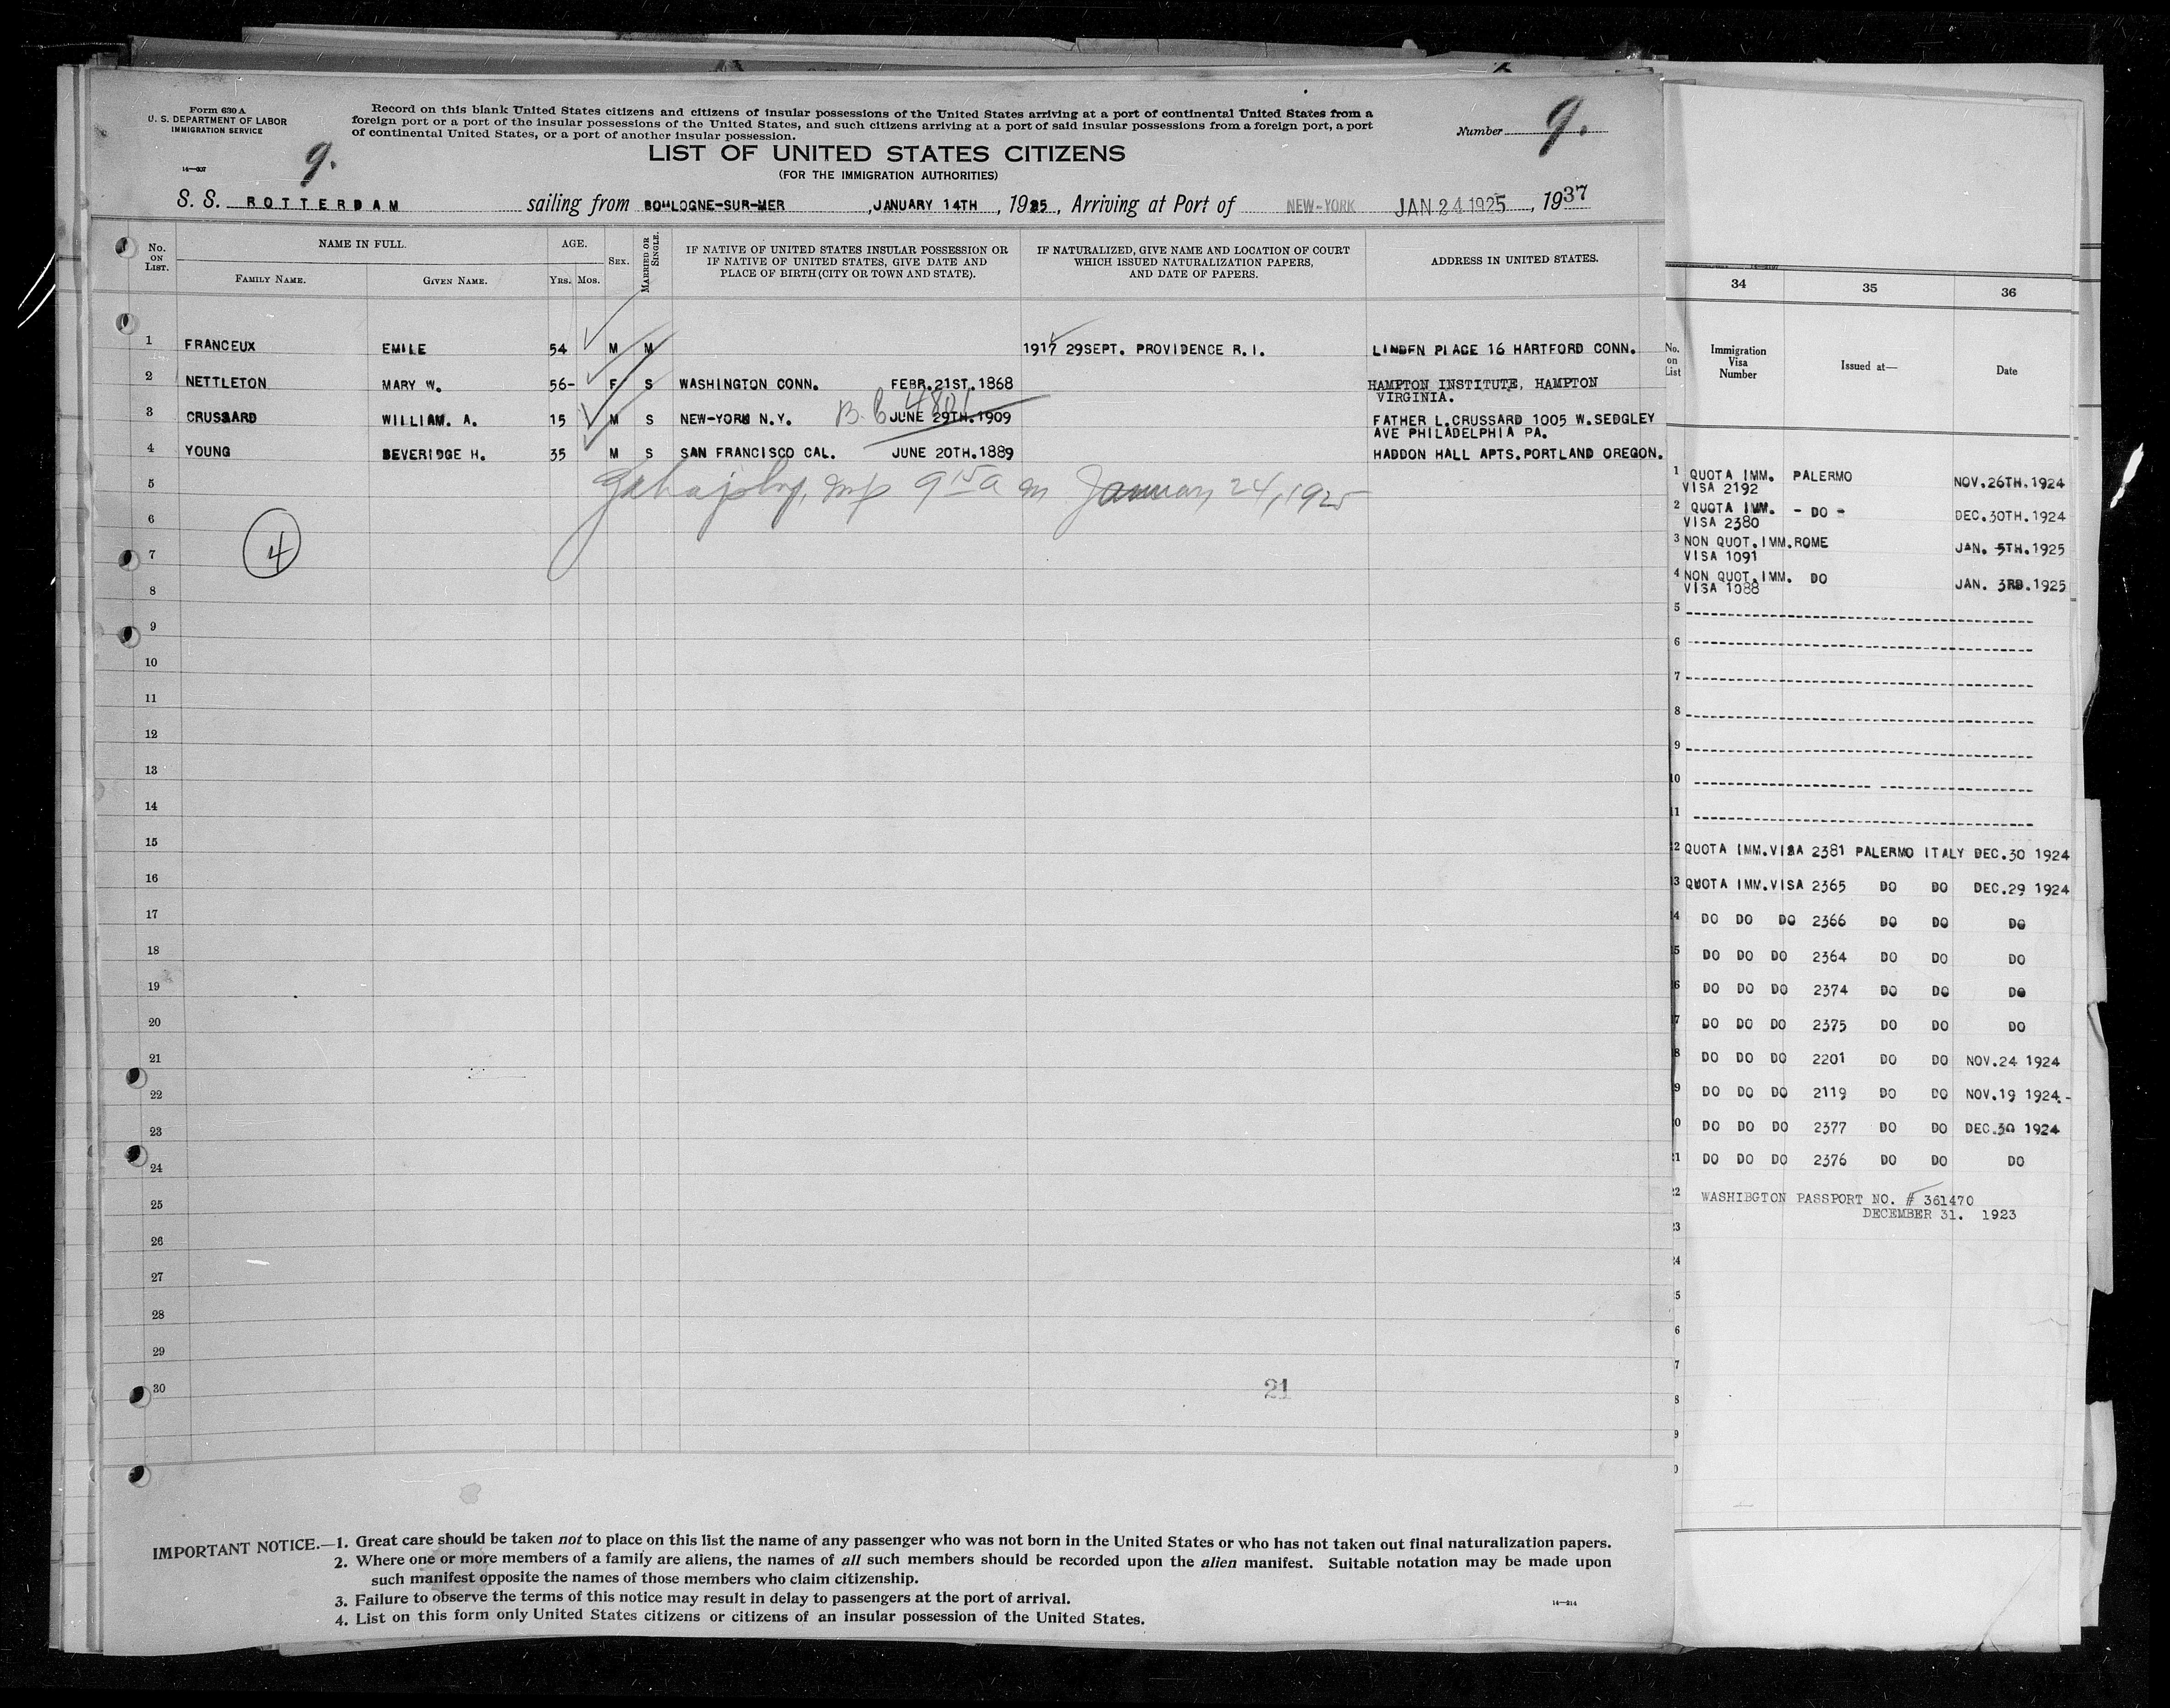 Form 630 A
U. S. DEPARTMENT OF LABOR
IMMIGRATION SERVICE
14—207
9.
Record on this blank United States citizens and citizens of insular possessions of the United States arriving at a port of continental United States from a
foreign port or a port of the insular possessions of the United States, and such citizens arriving at a port of said insular possessions from a foreign port, a port
of continental United States, or a port of another insular possession.
Number 9.
LIST OF UNITED STATES CITIZENS
(FOR THE IMMIGRATION AUTHORITIES)
S. S. ROTTERDAM sailing from BOULOGNE-SUR-MER, JANUARY 14TH, 1925, Arriving at Port of NEW-YORK JAN 24 1925, 1937
No. ON LIST.
NAME IN FULL.
FAMILY NAME.
GIVEN NAME.
AGE.
YRS. MOS.
SEX.
MARRIED OR SINGLE.
IF NATIVE OF UNITED STATES INSULAR POSSESSION OR
IF NATIVE OF UNITED STATES, GIVE DATE AND
PLACE OF BIRTH (CITY OR TOWN AND STATE).
IF NATURALIZED, GIVE NAME AND LOCATION OF COURT
WHICH ISSUED NATURALIZATION PAPERS,
AND DATE OF PAPERS.
ADDRESS IN UNITED STATES.
1 FRANCEUX EMILE 54 M M 1917 29SEPT. PROVIDENCE R.I. LINDEN PLACE 16 HARTFORD CONN.
2 NETTLETON MARY W. 56- F S WASHINGTON CONN. FEBR.21ST.1868 HAMPTON INSTITUTE, HAMPTON
VIRGINIA.
3 CRUSSARD WILLIAM. A. 15 M S NEW-YORK N.Y. B.C 4801 JUNE 29TH.1909 FATHER L.CRUSSARD 1005 W.SEDGLEY
AVE PHILADELPHIA PA.
4 YOUNG BEVERIDGE H. 35 M S SAN FRANCISCO CAL. JUNE 20TH.1889 HADDON HALL APTS.PORTLAND OREGON.
5
9 15 a m January 24, 1925
6
4
7
8
9
10
11
12
13
14
15
16
17
18
19
20
21
22
23
24
25
26
27
28
29
30
21
IMPORTANT NOTICE.—1. Great care should be taken not to place on this list the name of any passenger who was not born in the United States or who has not taken out final naturalization papers.
2. Where one or more members of a family are aliens, the names of all such members should be recorded upon the alien manifest. Suitable notation may be made upon
such manifest opposite the names of those members who claim citizenship.
3. Failure to observe the terms of this notice may result in delay to passengers at the port of arrival.
4. List on this form only United States citizens or citizens of an insular possession of the United States.
14—214
34 35 36
No. on List
Immigration Visa Number
Issued at—
Date
1 QUOTA IMM. PALERMO NOV.26TH.1924
VISA 2192
2 QUOTA IMM. - DO - DEC.30TH.1924
VISA 2380
3 NON QUOT.IMM.ROME JAN. 5TH.1925
VISA 1091
4 NON QUOT.IMM. DO JAN. 3RD.1925
VISA 1088
5
6
7
8
9
10
11
2 QUOTA IMM.VISA 2381 PALERMO ITALY DEC.30 1924
3 QUOTA IMM.VISA 2365 DO DO DEC.29 1924
4 DO DO DO 2366 DO DO DO
5 DO DO DO 2364 DO DO DO
6 DO DO DO 2374 DO DO DO
7 DO DO DO 2375 DO DO DO
8 DO DO DO 2201 DO DO NOV.24 1924
9 DO DO DO 2119 DO DO NOV.19 1924.-
0 DO DO DO 2377 DO DO DEC.30 1924
21 DO DO DO 2376 DO DO DO
22 WASHIBGTON PASSPORT NO. # 361470
DECEMBER 31. 1923
23
24
5
6
7
8
9
0